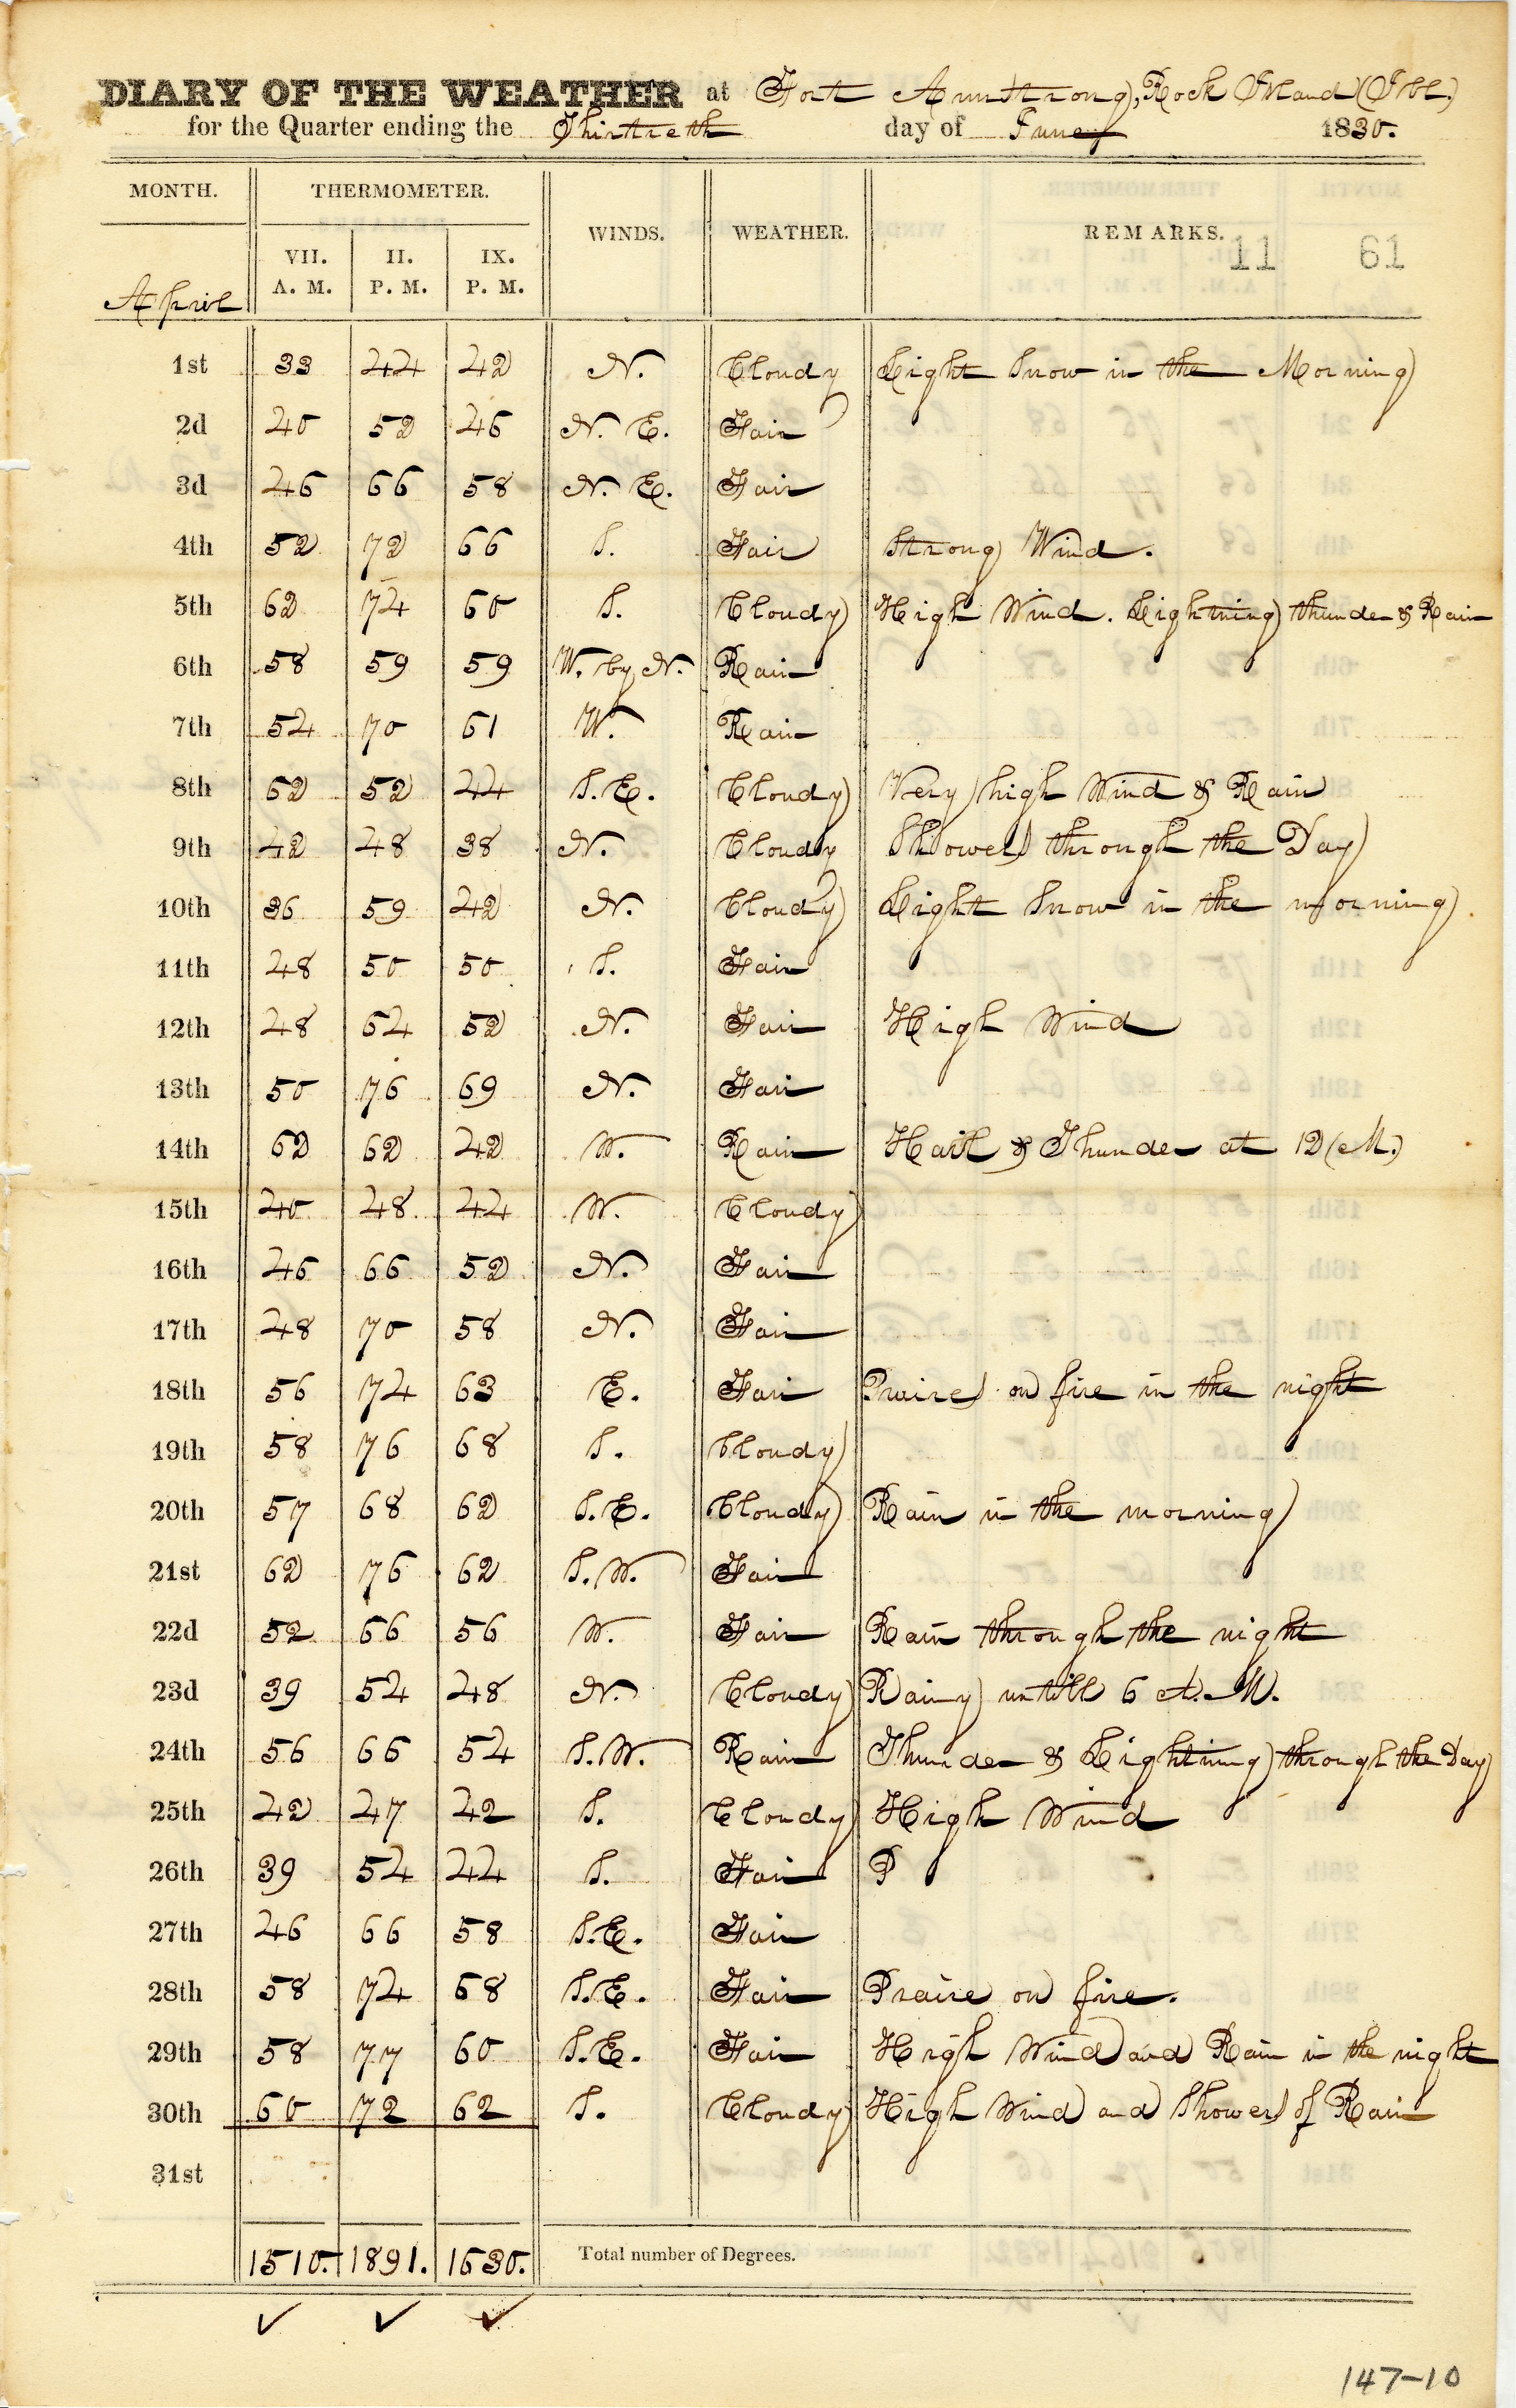 DIARY OF THE WEATHER at Fort Armstrong, Rock Island (Ill.)
for the Quarter ending the Thirtieth day of June 1830.
MONTH. THERMOMETER. WINDS. WEATHER. REMARKS.
11 61
April VII. A. M. II. P. M. IX. P. M.
1st 33 44 42 N. Cloudy Light Snow in the Morning
2d 40 52 46 N. E. Fair
3d 46 66 58 N. E. Fair
4th 52 72 66 S. Fair Strong Wind.
5th 62 74 60 S. Cloudy High Wind. Lightning thunder & Rain
6th 58 59 59 W. by N. Rain
7th 54 70 61 W. Rain
8th 62 52 44 S. E. Cloudy Very high Wind & Rain
9th 42 48 38 N. Cloudy Showers through the Day
10th 36 59 42 N. Cloudy Light Snow in the morning
11th 48 50 50 S. Fair
12th 48 64 52 N. Fair High Wind
13th 50 76 69 N. Fair
14th 62 62 42 W. Rain Hail & Thunder at 12 (M.)
15th 40 48 44 W. Cloudy
16th 46 66 52 N. Fair
17th 48 70 58 N. Fair
18th 56 74 63 E. Fair Praires on fire in the night
19th 58 76 68 S. Cloudy
20th 57 68 62 S. E. Cloudy Rain in the morning
21st 62 76 62 S. W. Fair
22d 52 66 56 W. Fair Rain through the night
23d 39 54 48 N. Cloudy Rainy untill 6 A. M.
24th 56 66 54 S. W. Rain Thunder & Lightning through the Day
25th 42 47 42 S. Cloudy High Wind
26th 39 54 44 S. Fair P
27th 46 66 58 S. E. Fair
28th 58 74 68 S. E. Fair Praire on fire.
29th 58 77 60 S. E. Fair High Wind and Rain in the night
30th 60 72 62 S. Cloudy High Wind and Showers of Rain
31st
1510. 1891. 1630. Total number of Degrees.
147-10